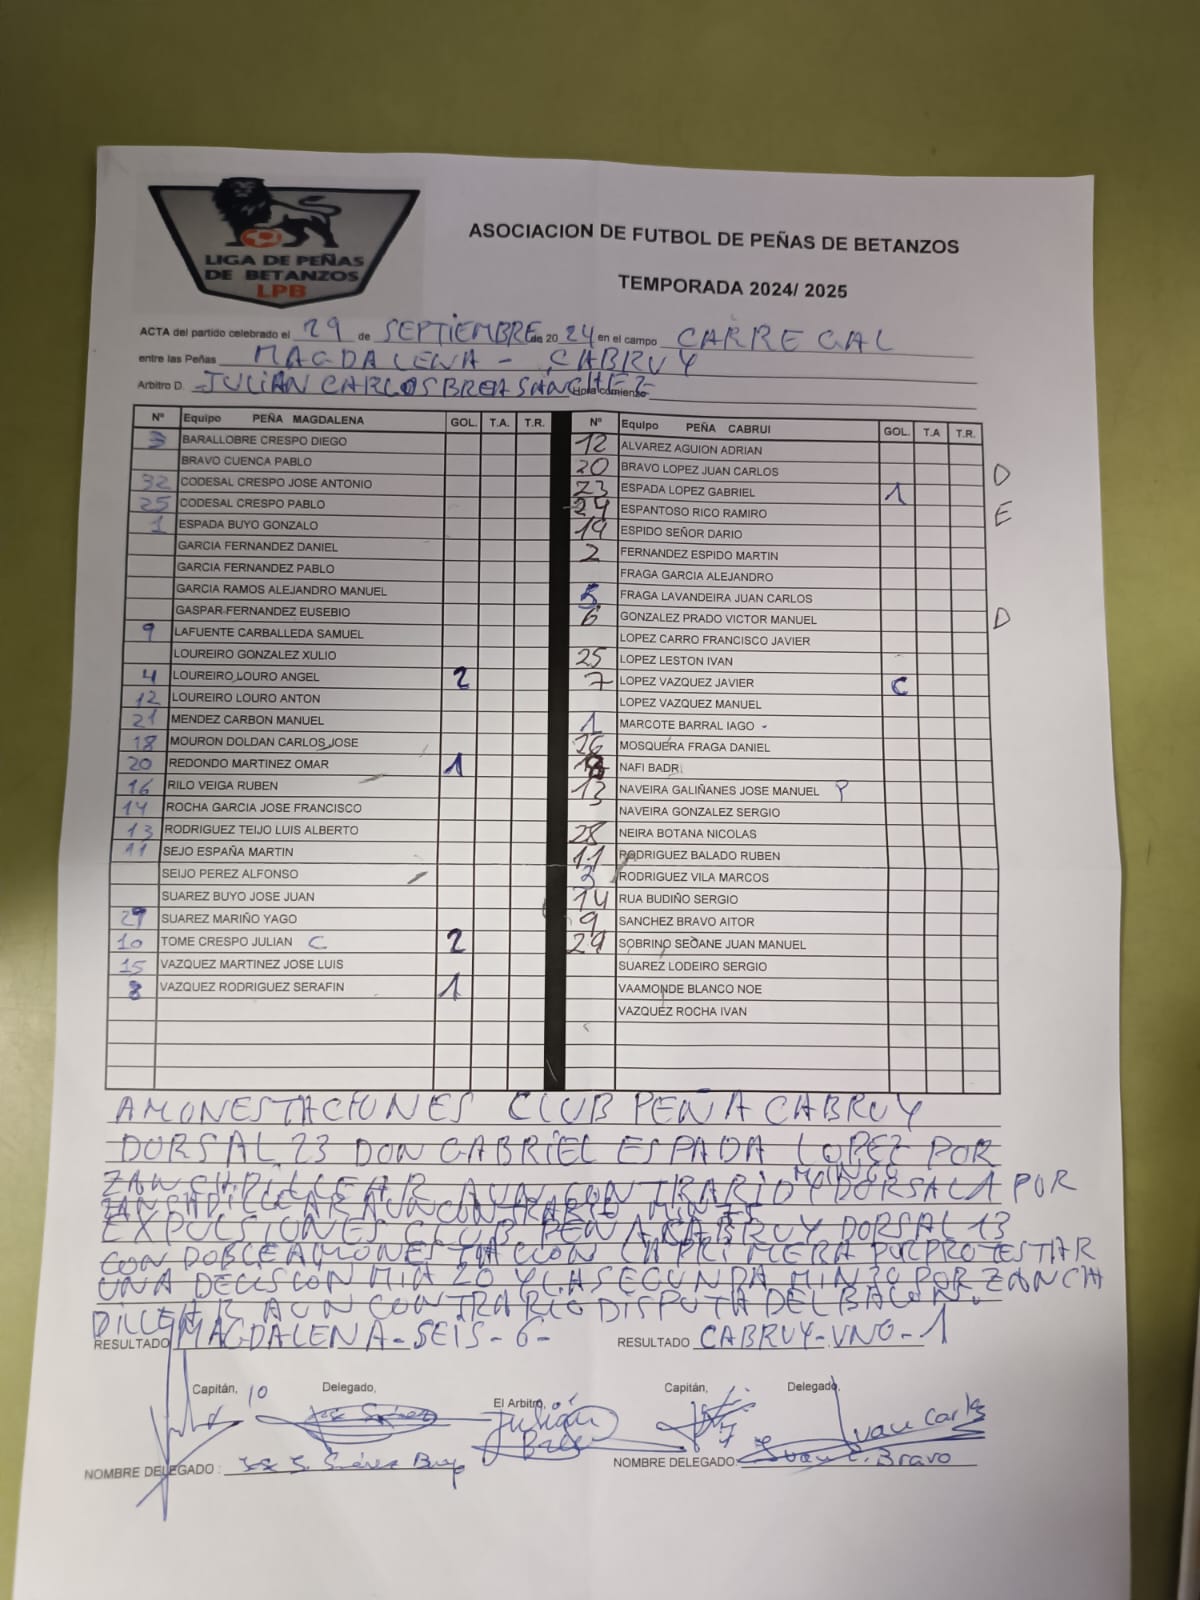 LIGA DE PEÑAS
DE BETANZOS
LPB
ASOCIACION DE FUTBOL DE PEÑAS DE BETANZOS
TEMPORADA 2024/ 2025
ACTA del partido celebrado el 29 de SEPTIEMBRE de 2024 en el campo CARREGAL
entre las Peñas MAGDALENA - CABRUY
Arbitro D. JULIÁN CARLOS BREA SÁNCHEZ Hora comienzo
Nº Equipo PEÑA MAGDALENA GOL. T.A. T.R. Nº Equipo PEÑA CABRUI GOL. T.A T.R.
3 BARALLOBRE CRESPO DIEGO 12 ALVAREZ AGUION ADRIAN
BRAVO CUENCA PABLO 20 BRAVO LOPEZ JUAN CARLOS D
32 CODESAL CRESPO JOSE ANTONIO 23 ESPADA LOPEZ GABRIEL 1
25 CODESAL CRESPO PABLO 24 ESPANTOSO RICO RAMIRO E
1 ESPADA BUYO GONZALO 19 ESPIDO SEÑOR DARIO
GARCIA FERNANDEZ DANIEL 2 FERNANDEZ ESPIDO MARTIN
GARCIA FERNANDEZ PABLO FRAGA GARCIA ALEJANDRO
GARCIA RAMOS ALEJANDRO MANUEL 5 FRAGA LAVANDEIRA JUAN CARLOS
GASPAR FERNANDEZ EUSEBIO 6 GONZALEZ PRADO VICTOR MANUEL D
9 LAFUENTE CARBALLEDA SAMUEL LOPEZ CARRO FRANCISCO JAVIER
LOUREIRO GONZALEZ XULIO 25 LOPEZ LESTON IVAN
4 LOUREIRO LOURO ANGEL 2 7 LOPEZ VAZQUEZ JAVIER C
12 LOUREIRO LOURO ANTON LOPEZ VAZQUEZ MANUEL
21 MENDEZ CARBON MANUEL 1 MARCOTE BARRAL IAGO -
18 MOURON DOLDAN CARLOS JOSE 26 MOSQUERA FRAGA DANIEL
20 REDONDO MARTINEZ OMAR 1 NAFI BADR
16 RILO VEIGA RUBEN 13 NAVEIRA GALIÑANES JOSE MANUEL P
14 ROCHA GARCIA JOSE FRANCISCO NAVEIRA GONZALEZ SERGIO
13 RODRIGUEZ TEIJO LUIS ALBERTO 28 NEIRA BOTANA NICOLAS
11 SEJO ESPAÑA MARTIN 11 RODRIGUEZ BALADO RUBEN
SEIJO PEREZ ALFONSO 3 RODRIGUEZ VILA MARCOS
SUAREZ BUYO JOSE JUAN 14 RUA BUDIÑO SERGIO
29 SUAREZ MARIÑO YAGO 9 SANCHEZ BRAVO AITOR
10 TOME CRESPO JULIAN C 2 29 SOBRINO SEOANE JUAN MANUEL
15 VAZQUEZ MARTINEZ JOSE LUIS SUAREZ LODEIRO SERGIO
8 VAZQUEZ RODRIGUEZ SERAFIN 1 VAAMONDE BLANCO NOE
VAZQUEZ ROCHA IVAN
AMONESTACIONES CLUB PEÑA CABRUY
DORSAL 23 DON GABRIEL ESPADA LOPEZ POR
ZANCHDILLEAR A UN CONTRARIO Y DORSAL 1 POR
ZANCHADILLEAR A UN CONTRARIO
EXPULSIONES CLUB PEÑA CABRUY DORSAL 13
CON DOBLE AMONESTACION LA PRIMERA POR PROTESTAR
UNA DECISION MIA 20 Y LA SEGUNDA MIN 30 POR ZANCHA
DILLEAR A UN CONTRARIO DISPUTA DEL BALON.
RESULTADO MAGDALENA-SEIS-6- RESULTADO CABRUY-UNO-1
Capitán, 10 Delegado, El Arbitro, Capitán, 7 Delegado,
Julián Brea Juan Carlos
NOMBRE DELEGADO : José J. Suárez Buyo NOMBRE DELEGADO: Juan C. Bravo